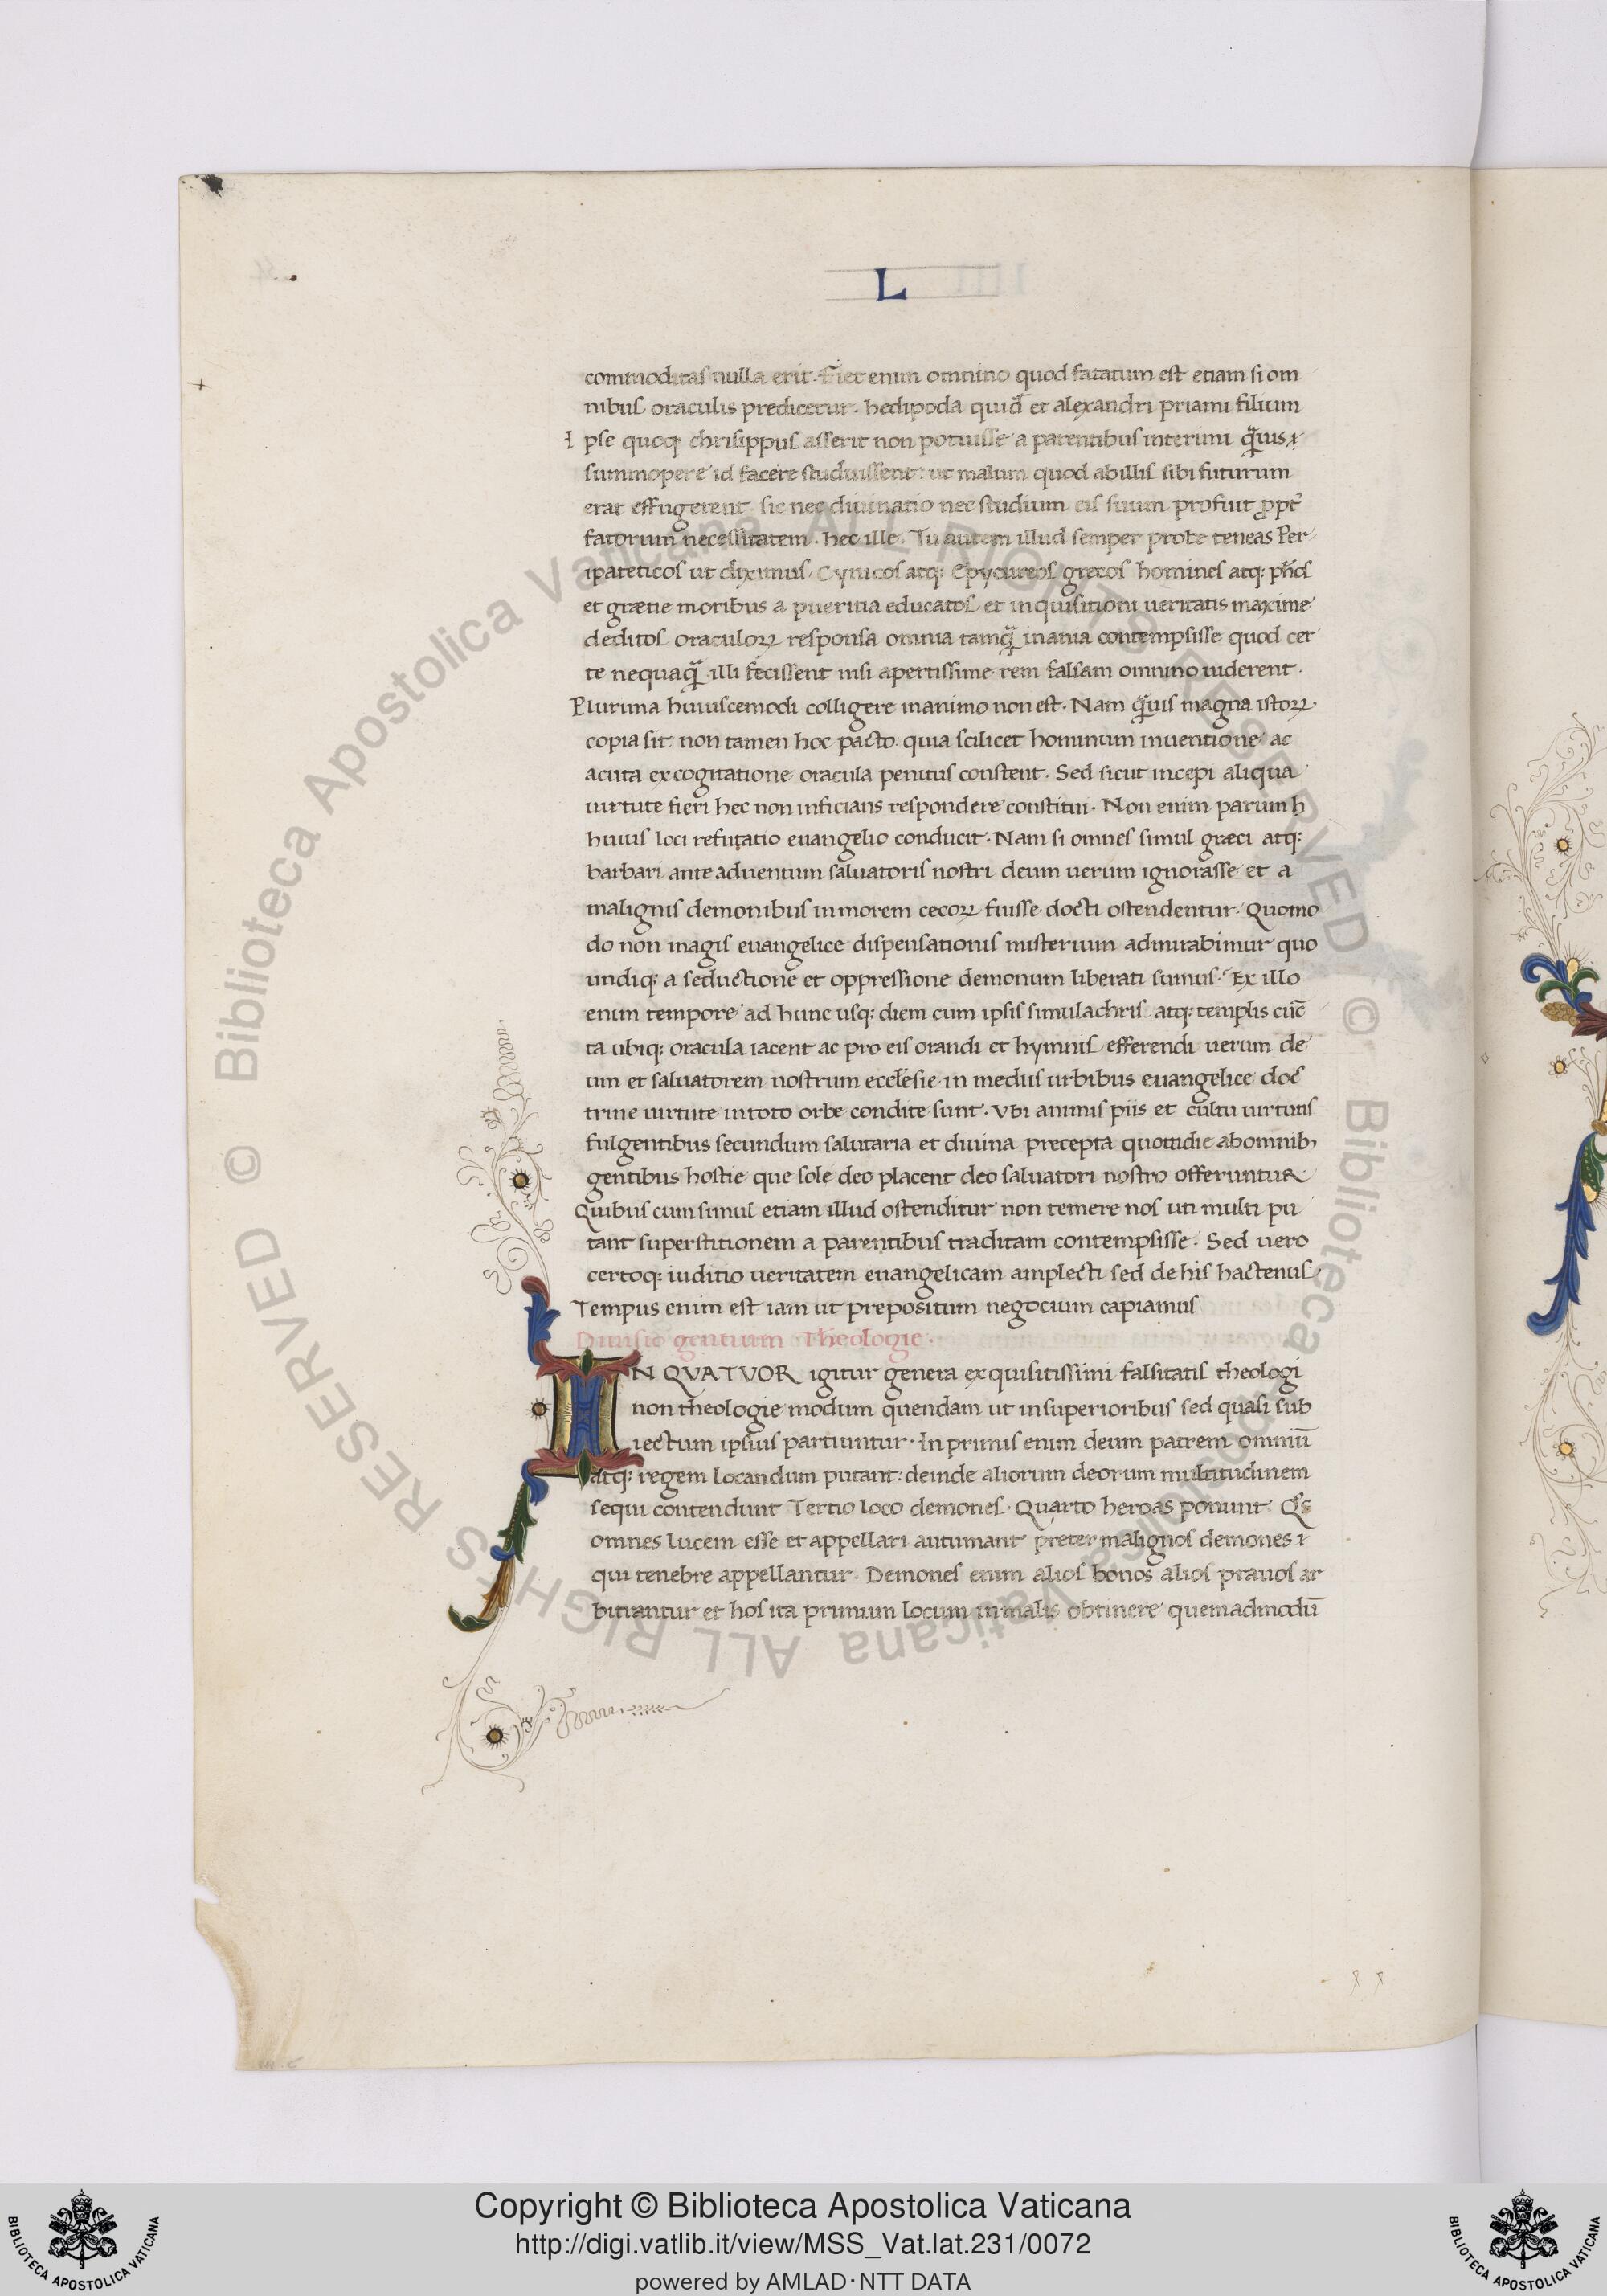 L
commoditas nulla erit. Fiet enim omnino quod fatatum est etiam si om
nibus oraculis predicetur. hedipoda quid̄ et alexandri priami filium
I pse quoq; chrisippus asserit non potuisse a parentibus interimi q̄uis
summopere id facere studuissent: ut malum quod ab illis sibi futurum
erat effugerent. sic nec diuinatio nec studium eis suum profuit ꝓpt̄
fatorum necessitatem. hec ille. Tu autem illud semper probe teneas Per
ipateticos ut diximus. Cynicos atq; Epycureos grecos homines atq; ph̄os
et grætie moribus a pueritia educatos et inquisitioni ueritatis maxime
deditos oraculoꝝ responsa omnia tamq̄ inania contempsisse quod cer
te nequaq̄ illi fecissent nisi apertissime rem falsam omnino uiderent.
Plurima huiuscemodi colligere in animo non est. Nam q̄uis magna istoꝝ
copia sit non tamen hoc pacto quia scilicet hominum inuentione ac
acuta excogitatione oracula penitus constent. Sed sicut incepi aliqua
uirtute fieri hec non inficians respondere constitui. Non enim parum h
huius loci refutatio euangelio conducit. Nam si omnes simul græci atq;
barbari ante aduentum saluatoris nostri deum uerum ignorasse et a
malignis demonibus in morem cecoꝝ fuisse docti ostendentur. Quomo
do non magis euangelice dispensationis misterium admirabimur quo
undiq; a seductione et oppressione demonum liberati sumus. Ex illo
enim tempore ad hunc usq; diem cum ipsis simulachris atq; templis cūc
ta ubiq; oracula iacent ac pro eis orandi et hymnis efferendi uerum de
um et saluatorem nostrum ecclesie in mediis urbibus euangelice doc
trine uirtute in toto orbe condite sunt. Vbi animis piis et cultu uirtutis
fulgentibus secundum salutaria et diuina precepta quottidie ab omnib;
gentibus hostie que sole deo placent deo saluatori nostro offeruntur
Quibus cum simul etiam illud ostenditur non temere nos uti multi pu
tant superstitionem a parentibus traditam contempsisse. Sed uero
certoq; iuditio ueritatem euangelicam amplecti sed de his hactenus.
Tempus enim est iam ut prepositum negocium capiamus
Diuisio gentium Theologie.
IN QVATVOR igitur genera exquisitissimi falsitatis theologi
non theologie modum quendam ut in superioribus sed quasi sub
iectum ipsius partiuntur. In primis enim deum patrem omniū
atq; regem locandum putant: deinde aliorum deorum multitudinem
sequi contendunt Tertio loco demones. Quarto heroas ponunt. Q̄s
omnes lucem esse et appellari autumant preter malignos demones
qui tenebre appellantur. Demones enim alios bonos alios prauos ar
bitrantur et hos ita primum locum in malis obtinere quemadmodū
Copyright © Biblioteca Apostolica Vaticana
http://digi.vatlib.it/view/MSS_Vat.lat.231/0072
powered by AMLAD·NTT DATA
BIBLIOTECA APOSTOLICA VATICANA
BIBLIOTECA APOSTOLICA VATICANA
© Biblioteca Apostolica Vaticana ALL RIGHTS RESERVED
© Biblioteca Apostolica Vaticana ALL RIGHTS RESERVED